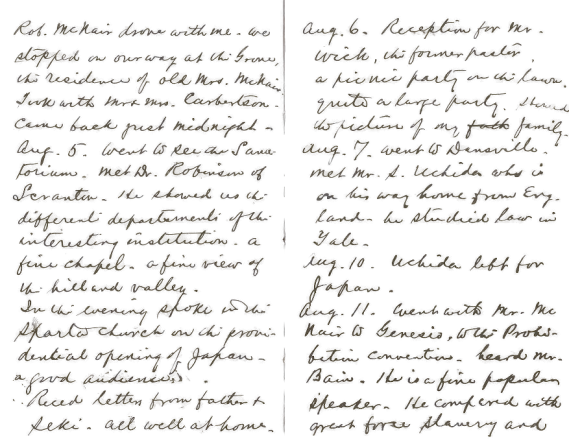 Rob. McNair drove with me. we
stopped on our way at the Grove,
the residence of old Mrs. McNair.
Took with Mr & Mrs. Carbertson.
Came back just midnight.
Aug. 5. Went to see the Sana
torium. Met Dr. Robinson of
Scranton. He showed us the
different departments of the
interesting institution. a
fine chapel. a fine view of
the hill and valley.
In the evening spoke in the
Sparta church on the provi-
dential opening of Japan.
a good audience.
Reced letters from father &
Seki. All well at home.
Aug. 6. Reception for Mr.
Wick, the former pastor.
a picnic party on the lawn.
quite a large party. Showed
the picture of my family.
Aug. 7. Went to Dansville.
met Mr. S. Uchida who is
on his way home from Eng-
land. he studied law in
Yale.
Aug. 10. Uchida left for
Japan.
Aug. 11. Went with Mr. Mc
Nair to Genesio, to the Prohi-
bition convention. heard Mr.
Bain. He is a fine popular
speaker. He compered with
great force slavery and